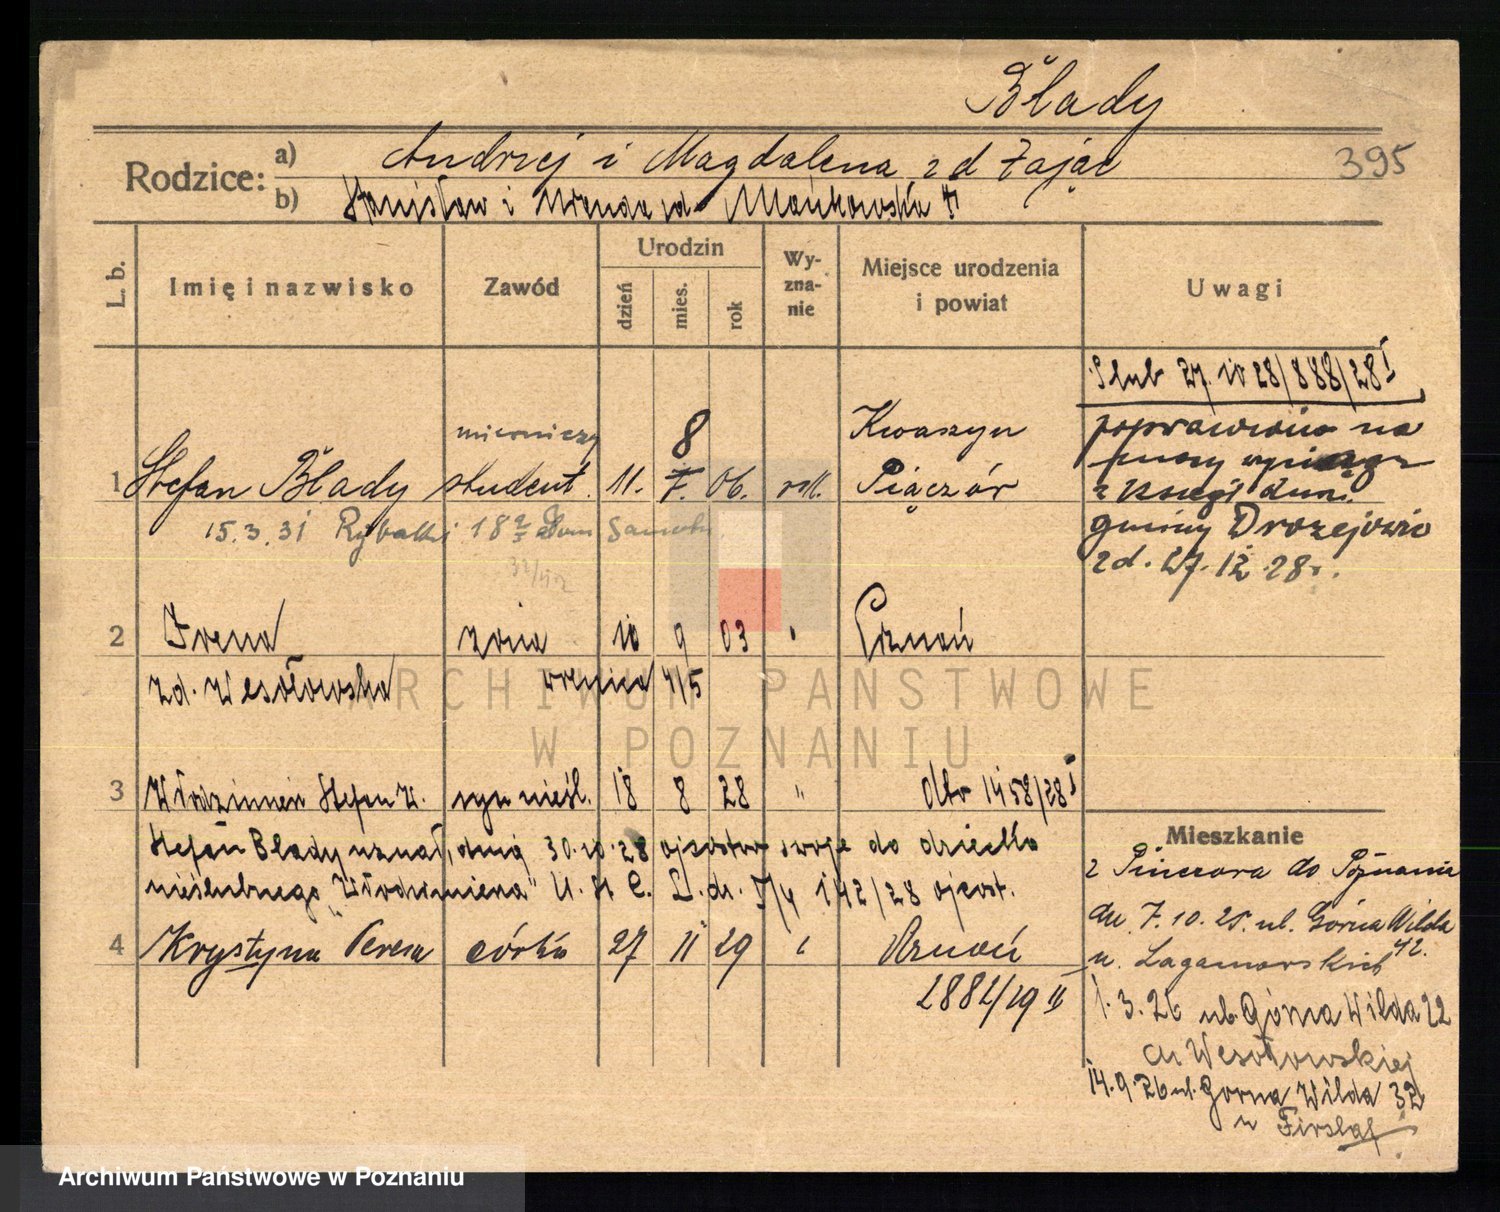 Błady
Rodzice: a) Andrzej i Magdalena z d Zając
395
b) Stanisław i Wanda zd. Mańkowska
L. b. Imię i nazwisko Zawód Urodzin dzień mies. rok Wyznanie Miejsce urodzenia i powiat Uwagi
Ślub 27. IV 28/888/28 I
mierniczy 8 Kwaszyn
poprawiono na
1 Stefan Błady student 11. 7. 06. rzk. Pięczór
z księgi
15.3.31 Rybaki 18
gminy Drozejowic
z d. 27. 12. 28 r.
2 Irena żona 10 9 03 " Poznań
zd. Wesołowska 4/5
3 Włodzimierz Stefan W. syn nieśl. 18 8 28 " 1458/28 I
Mieszkanie
Stefan Błady uznał, dnia 30.10.28 ojcostwo swoje do dziecka
z Pinczora do Poznania
nieślubnego "Włodzimierza" U. St. C. L. dz. 142/28 ojcost.
dn. 7.10.25. ul. Górna Wilda 42.
4 Krystyna Teresa córka 27 11 29 " Poznań
u.
2882/29 II
1.3.26 ul. Górna Wilda 22
u Wesołowskiej
14.9.26 ul. Górna Wilda 32
u
ARCHIWUM PAŃSTWOWE
W POZNANIU
Archiwum Państwowe w Poznaniu